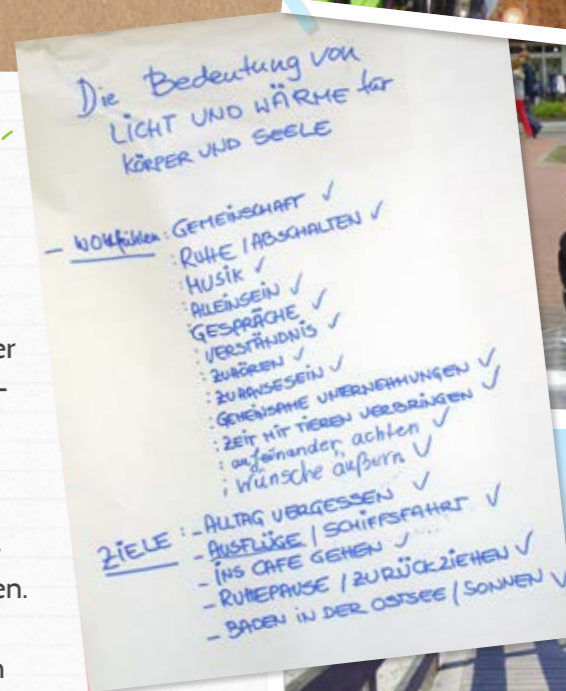 Die Bedeutung von
LICHT UND WÄRME für
KÖRPER UND SEELE
– Wohlfühlen: GEMEINSCHAFT ✓
: RUHE / ABSCHALTEN ✓
: MUSIK ✓
: ALLEINSEIN ✓
GESPRÄCHE ✓
: VERSTÄNDNIS ✓
: ZUHÖREN ✓
: ZUHAUSESEIN ✓
: GEMEINSAME UNTERNEHMUNGEN ✓
: ZEIT MIT TIEREN VERBRINGEN ✓
: aufeinander achten ✓
: Wünsche äußern ✓
ZIELE : – ALLTAG VERGESSEN ✓
– AUSFLÜGE / SCHIFFSFAHRT ✓
– INS CAFE GEHEN ✓
– RUHEPAUSE / ZURÜCKZIEHEN ✓
– BADEN IN DER OSTSEE / SONNEN ✓